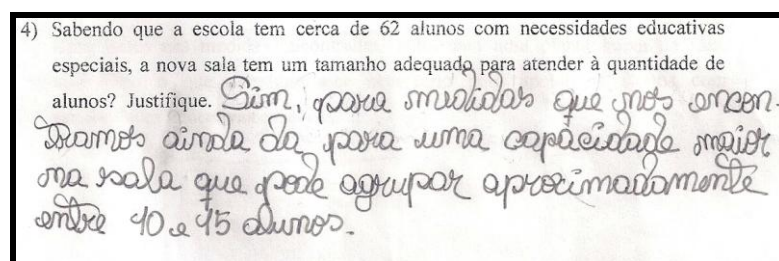 4) Sabendo que a escola tem cerca de 62 alunos com necessidades educativas
especiais, a nova sala tem um tamanho adequado para atender à quantidade de
alunos? Justifique. Sim, para medidas que nos encon-
tramos ainda da para uma capacidade maior
na sala que pode agrupar aprocimadamente
entre 40 e 45 alunos.